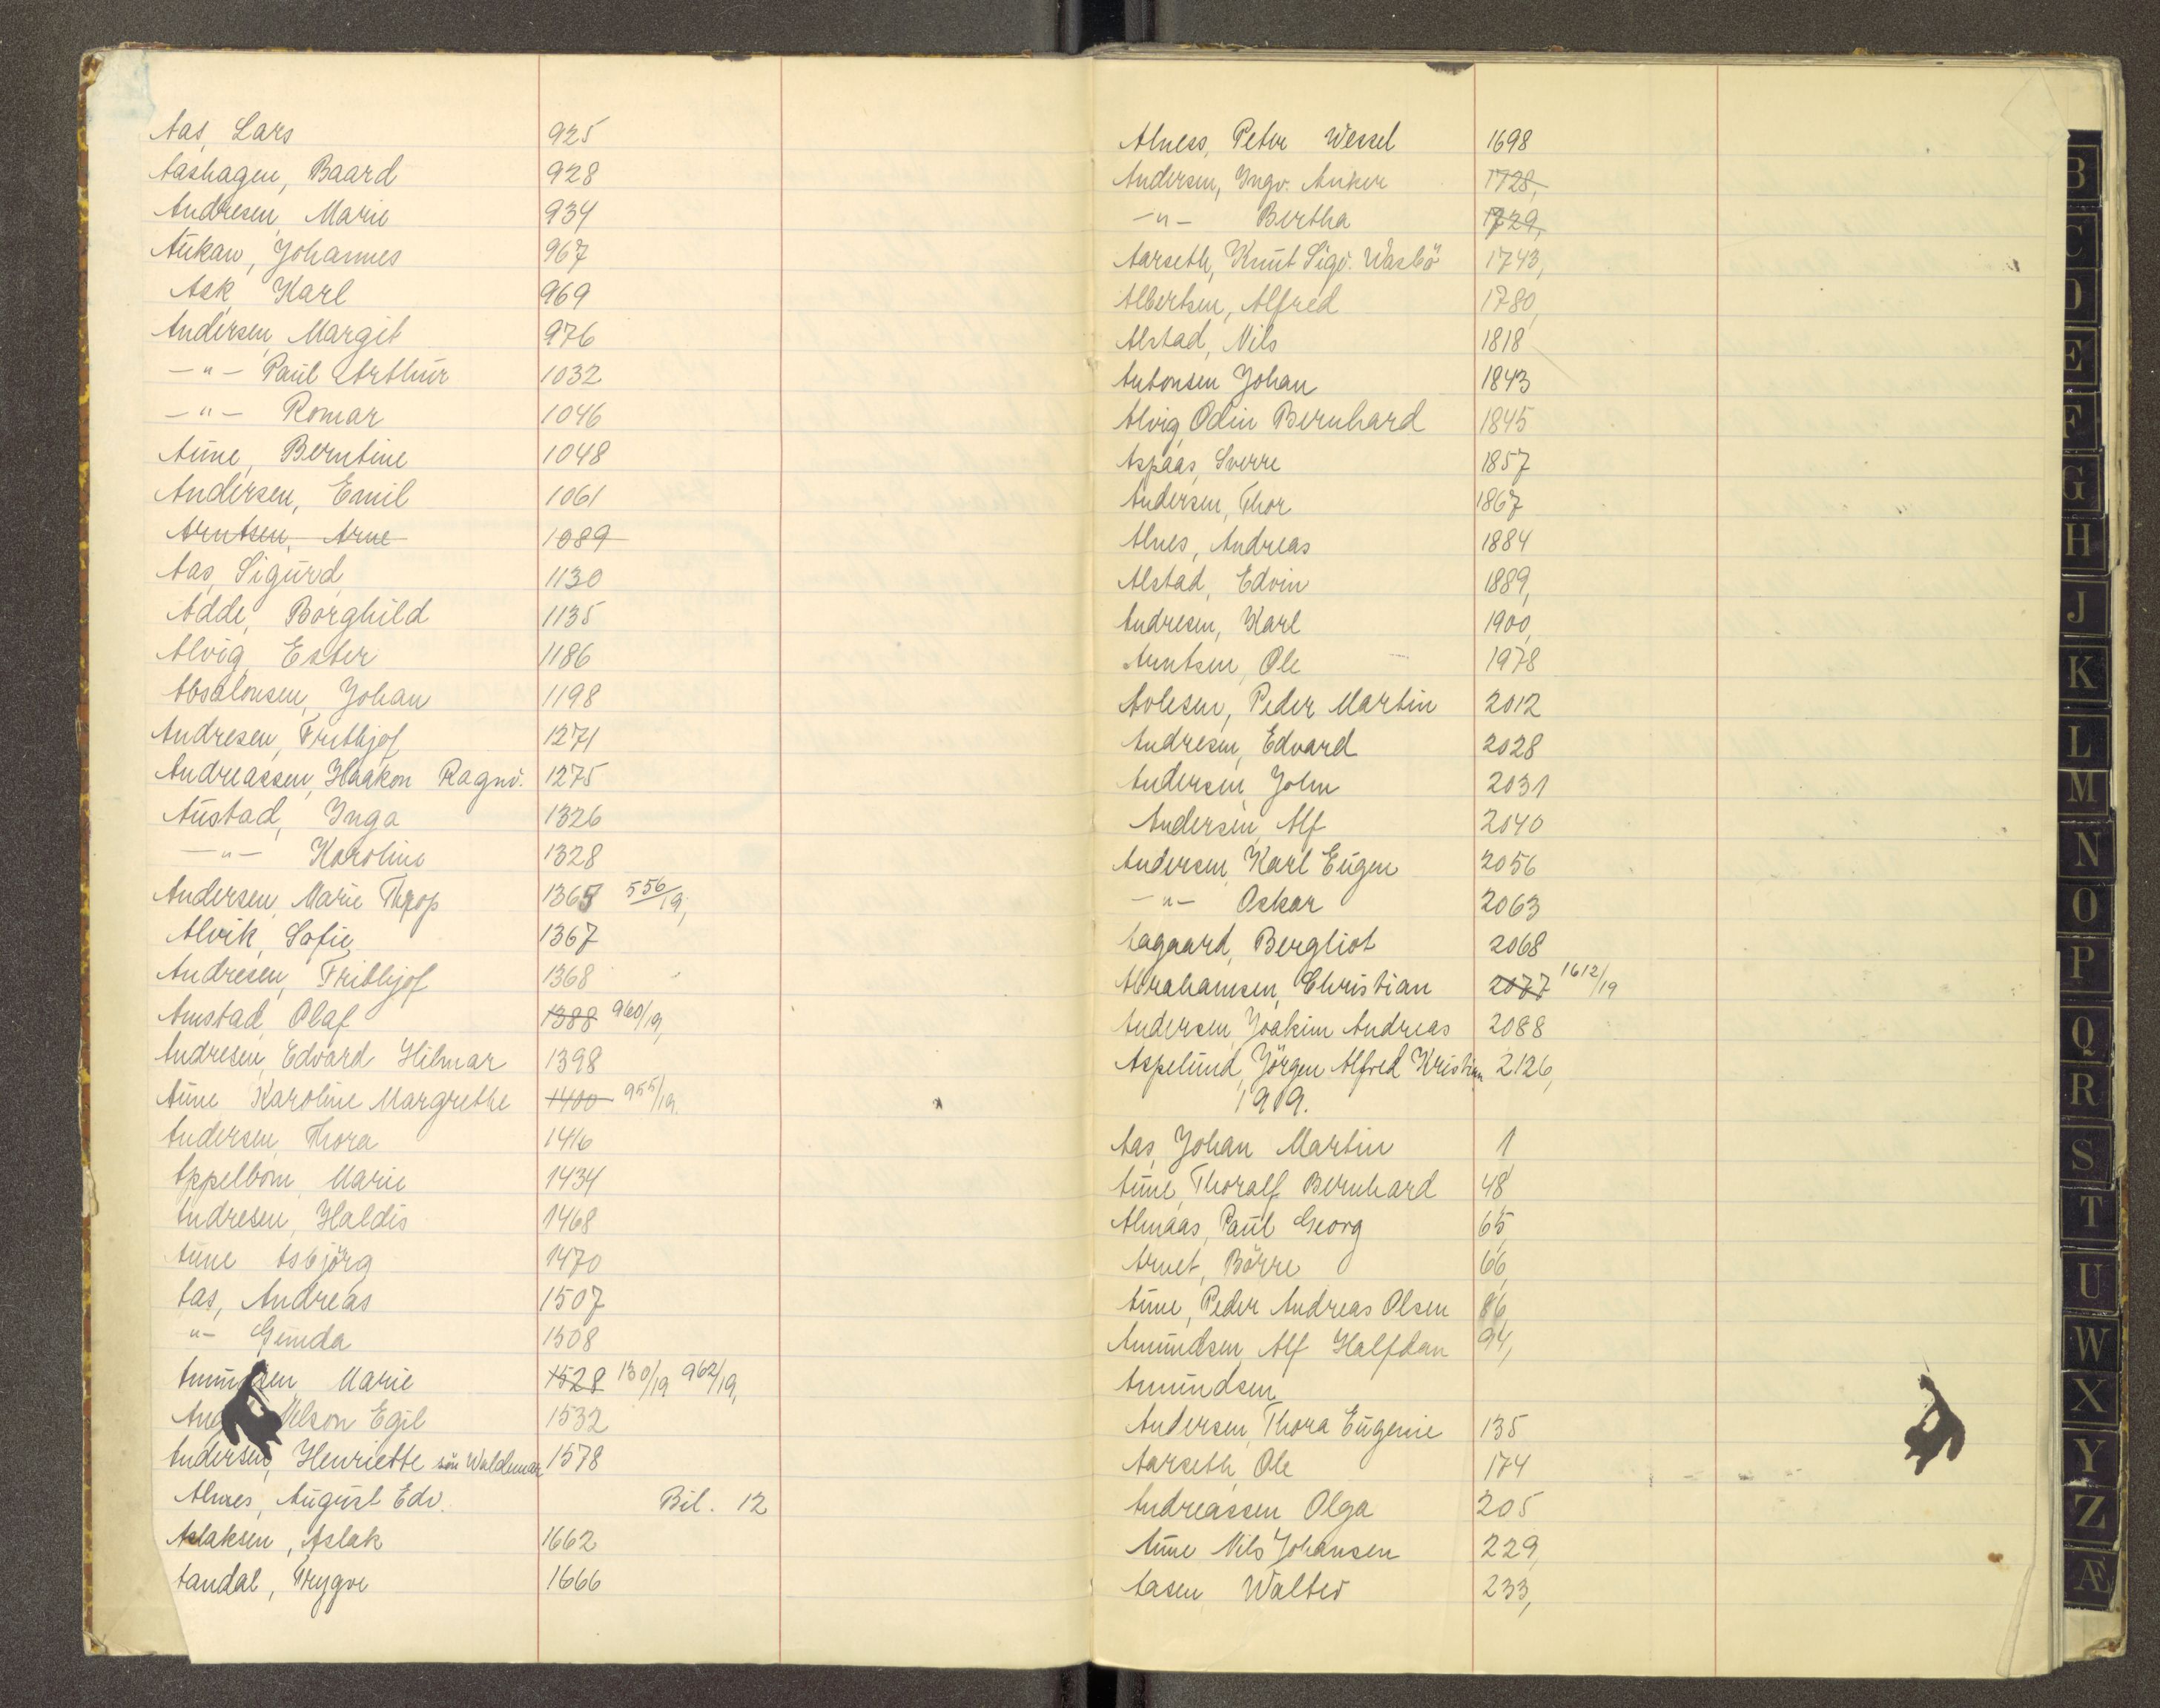 Aas, Lars 925
Aashagen, Baard 928
Andresen, Marie 934
Aukan, Johannes 967
Ask, Karl 969
Andersen, Margit 976
—"— Paul Arthur 1032
—"— Romar 1046
Aune, Berntine 1048
Andersen, Emil 1061
Arntsen, Arne 1089
Aas, Sigurd 1130
Adde, Borghild 1135
Alvig, Ester 1186
Absalonsen, Johan 1198
Andresen, Frithjof 1271
Andreassen, Haakon Ragnv. 1275
Austad, Inga 1326
—"— Karoline 1328
Andersen, Marie 1365 556/19,
Alvik, Sofie 1367
Andresen, Frithjof 1368
Amstad, Olaf 1388 960/19,
Andresen, Edvard Hilmar 1398
Aune Karoline Margrethe 1400 955/19.
Andersen, Thora 1416
Appelbom, Marie 1434
Andresen, Haldis 1468
Aune Asbjörg 1470
Aas, Andreas 1507
"— Gunda 1508
Marie 1528 130/19 962/19,
Nelson Egil 1532
Andersen, Henriette Waldemar 1578
Alnæs, August Edv. Bil. 12
Aslaksen, Aslak 1662
Aandal, Trygve 1666
Alness, Peter Wessel 1698
Andersen, Ingv. Anker 1728,
—"— Bertha 1729,
Aarseth, Knut Sigv. Wasbö 1743,
Albertsen, Alfred 1780,
Alstad, Nils 1818
Antonsen Johan 1843
Alvig Odin Bernhard 1845
Aspaas, Sverre 1857
Andersen, Thor 1867
Alnes, Andreas 1884
Alstad, Edvin 1889,
Andresen, Karl 1900,
Arntsen, Ole 1978
Avlesen, Peder Martin 2012
Andresen, Edvard 2028
Andersen, John 2031
Andersen, Alf 2040
Andersen, Karl Eugen 2056
—"— Oskar 2063
Aagaard, Bergliot 2068
Abrahamsen, Christian 2077 1612/19
Andersen, Joakim Andreas 2088
Aspelund, Jörgen Alfred Kristian 2126,
1919.
Aas, Johan Martin 1
Aune, Thoralf Bernhard 48
Almaas, Paul Georg 65,
Arnet, Börre 66,
Aune, Peder Andreas Olsen 86,
Amundsen Alf Halfdan 94,
Amundsen
Andersen, Thora Eugenie 135
Aarseth, Ole 174
Andreassen Olga 205
Aune Nils Johansen 229,
Aasen Walter 233,
B
C
D
E
F
G
H
J
K
L
M
N
O
P
Q
R
S
T
U
W
X
Y
Z
Æ